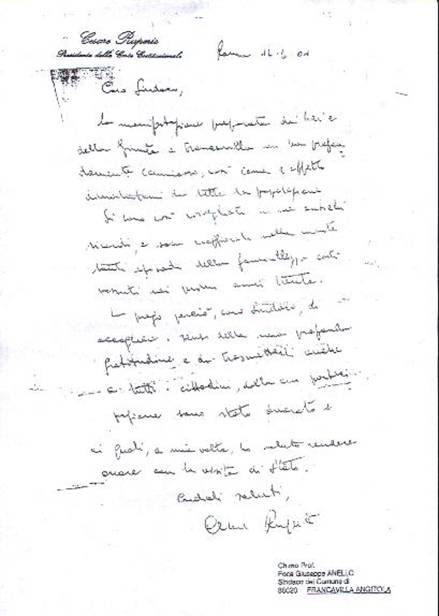 Cesare Ruperto
Presidente della Corte Costituzionale
Roma
Caro Sindaco,
La manifestazione preparata da Lei e
della Giunta a Francavilla mi ha profon
damente commosso, così come l'affetto
dimostratomi da tutta la popolazione
Si sono così risvegliati in me antichi
ricordi, e sono riaffiorati nella mente
tanti episodi della fanciullezza costì
vissuti nei primi anni trenta.
La prego perciò, caro Sindaco, di
accogliere i sensi della mia profonda
gratitudine e di trasmetterli anche
a tutti i cittadini, dalla cui parteci
pazione sono stato onorato e
ai quali, a mia volta, ho voluto rendere
onore con la visita di Stato.
Cordiali saluti,
Cesare Ruperto
Ch.mo Prof.
Foca Giuseppe ANELLO
Sindaco del Comune di
FRANCAVILLA ANGITOLA